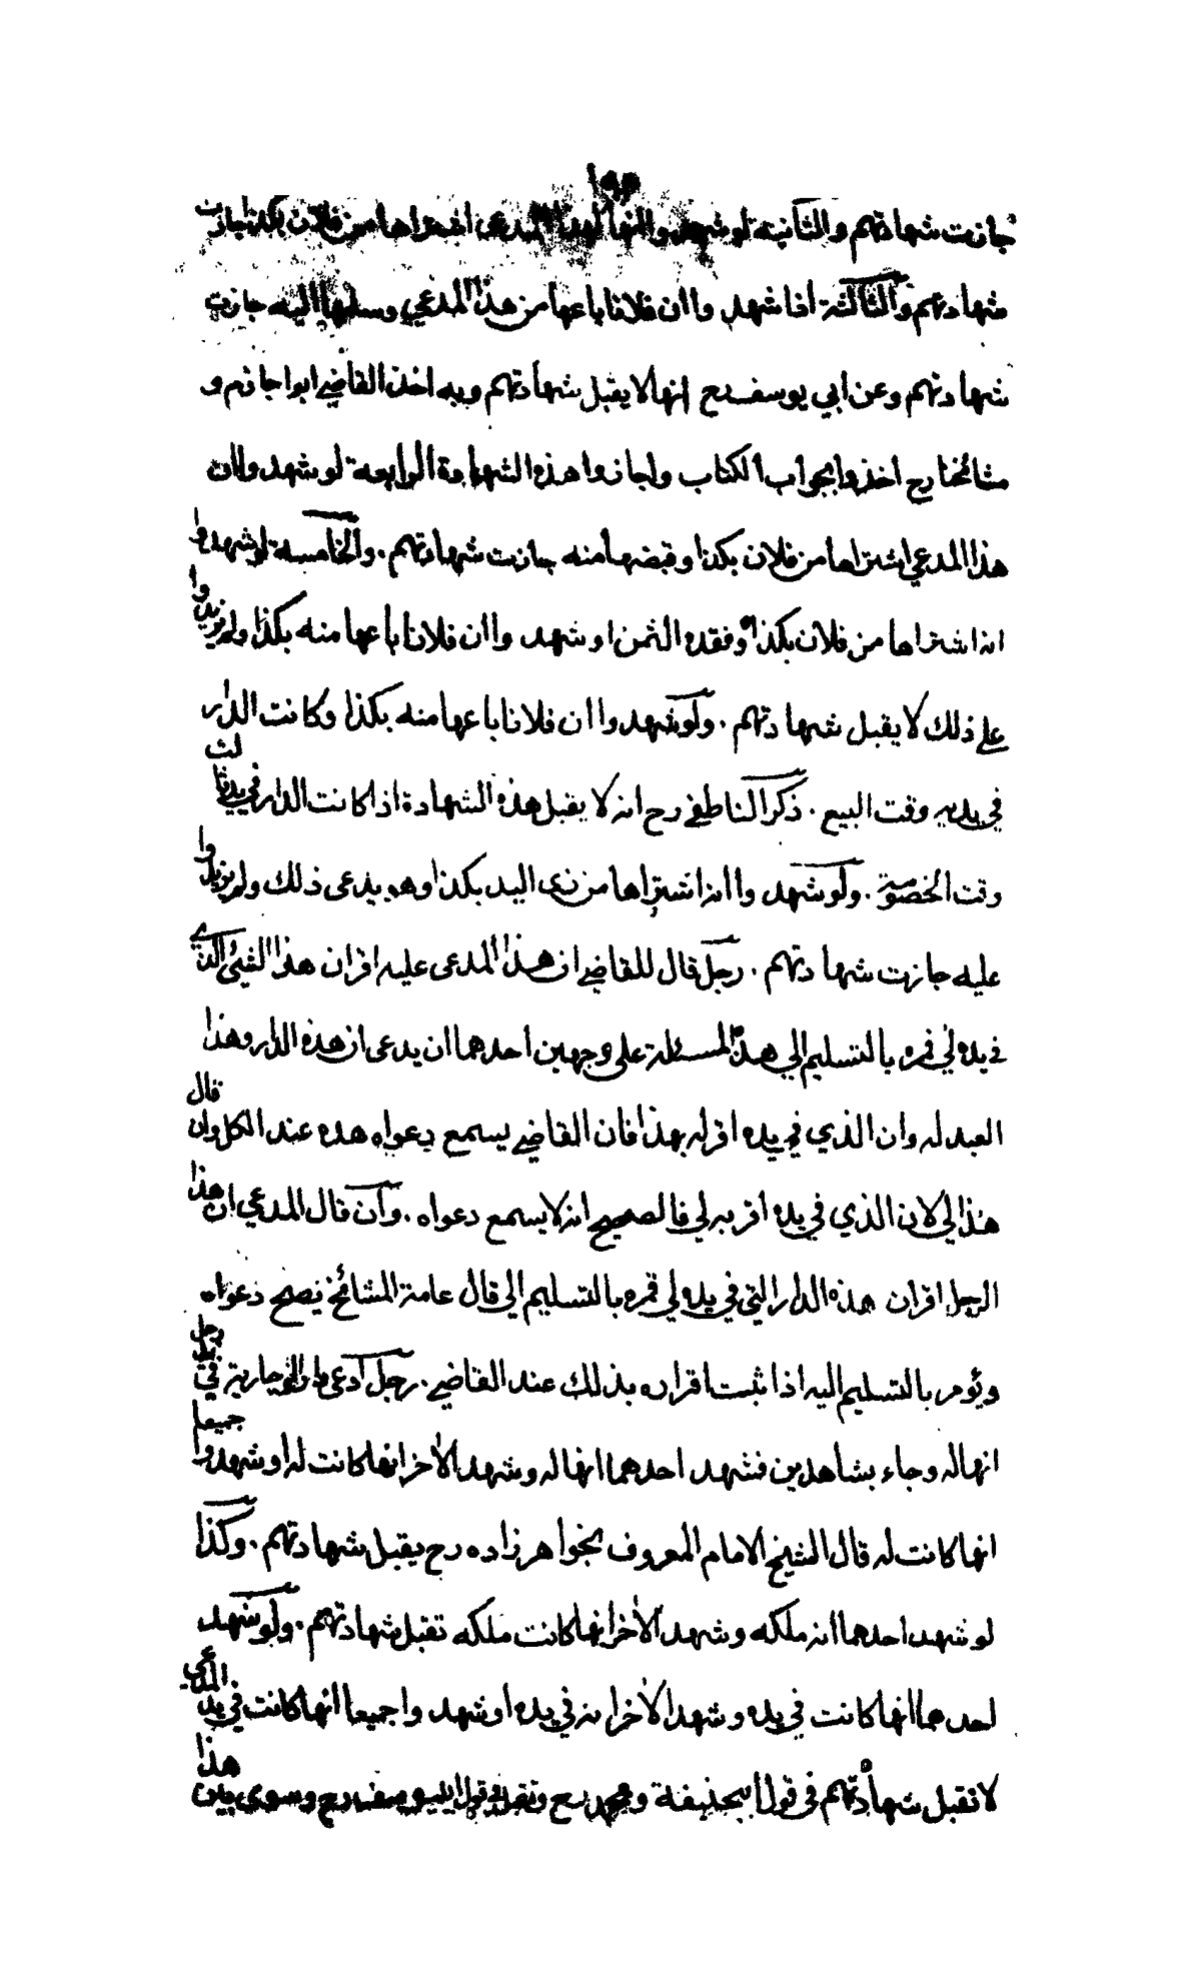 ١٩٥
جازت شهادتهم والثانية لو شهدوا انها لهذا المدعى اشتراها من فلان بكذا جازت
شهادتهم والثالثة اذا شهدوا ان فلانا باعها من هذا المدعي وسلمها اليه جازت
شهادتهم وعن ابي يوسف رح انها لا يقبل شهادتهم وبه اخذ القاضي ابوا جازم و
مشائخنا رح اخذوا بجواب الكتاب واجازوا هذه الشهادة الرابعة لو شهدوا ان
هذا المدعي اشتراها من فلان بكذا وقبضها منه جازت شهادتهم . والخامسة لو شهدوا
انه اشتراها من فلان بكذا وفقده الثمن او شهدوا ان فلانا باعها منه بكذا ولم يزيدوا
علي ذلك لا يقبل شهادتهم . ولو شهدوا ان فلانا باعها منه بكذا وكانت الدار
في يديه وقت البيع . ذكر الناطفي رح انه لا يقبل هذه الشهادة اذا كانت الدار في يد ثالث
وقت الخصومة . ولو شهدوا انه اشتراها من ذى اليد بكذا وهو يدعى ذلك ولم يزيدوا
عليه جازت شهادتهم . رجل قال للقاضي ان هذا المدعى عليه اقر ان هذا الشئ الذي
في يده لي فمره بالتسليم الي هذا المسئلة على وجهين احدهما ان يدعى ان هذه الدار وهذا
العبد له وان الذي في يده اقر له بهذا فان القاضي يسمع دعواه هذه عند الكل وان قال
هذا لي لان الذي في يده اقر به لي فالصحيح انه لا يسمع دعواه . وان قال المدعي ان هذا
الرجل اقر ان هذه الدار التي في يده لي فمره بالتسليم الي قال عامة المشائخ يصح دعواه
ويؤمر بالتسليم اليه اذا ثبت اقراره بذلك عند القاضي . رجل ادعى جارية في يد رجل
انها له وجاء بشاهدين فشهد احدهما انها له وشهد الاخر انها كانت له او شهدوا جميعا
انها كانت له قال الشيخ الامام المعروف بخواهر زاده رح يقبل شهادتهم . وكذا
لو شهد احدهما انه ملكه وشهد الاخر انها كانت ملكه تقبل شهادتهم . ولو شهد
احدهما انها كانت في يده وشهد الاخر انه في يده او شهدوا جميعا انها كانت في يد المدعي
لا تقبل شهادتهم في قول ابيحنيفة ومحمد رح وتقبل في قول ابييوسف رح وسوي بين هذا